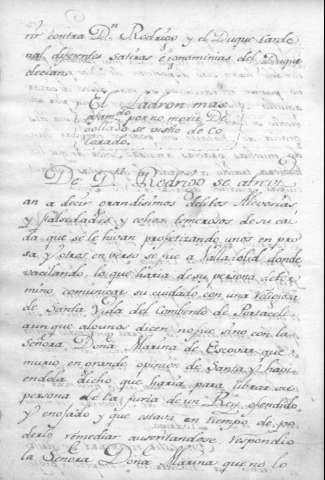 rir contra Dn. Rodrigo y el Duque Carde
nal diferentes satiras è ignominias del Duque
decian.
El Ladron mas
por no morir De
gollado se vistio de Co
lorado.
De Dn. Rodrigo se atrevi
an a decir grandisimos delitos Alevosias
y falsedades y otras temerosos de su cai
da que se le hivan profetizando unos en pro
sa, y otros en verso se fue a Valladolid donde
vacilando, lo que haria de su persona deter
mino comunicar su cuidado con una religiosa
de Santa Vida del Combento de Portaceli
aunque algunos dicen no fue sino con la
Señora Doña Marina de Escovar que
murio en grande opinion de Santa y havi
endola dicho que haria para librar su
persona de la furia de un Rey ofendido
y enojado y que estava en tiempo de po
derlo remediar ausentandose. Respondio
la Señora Doña Marina que no lo